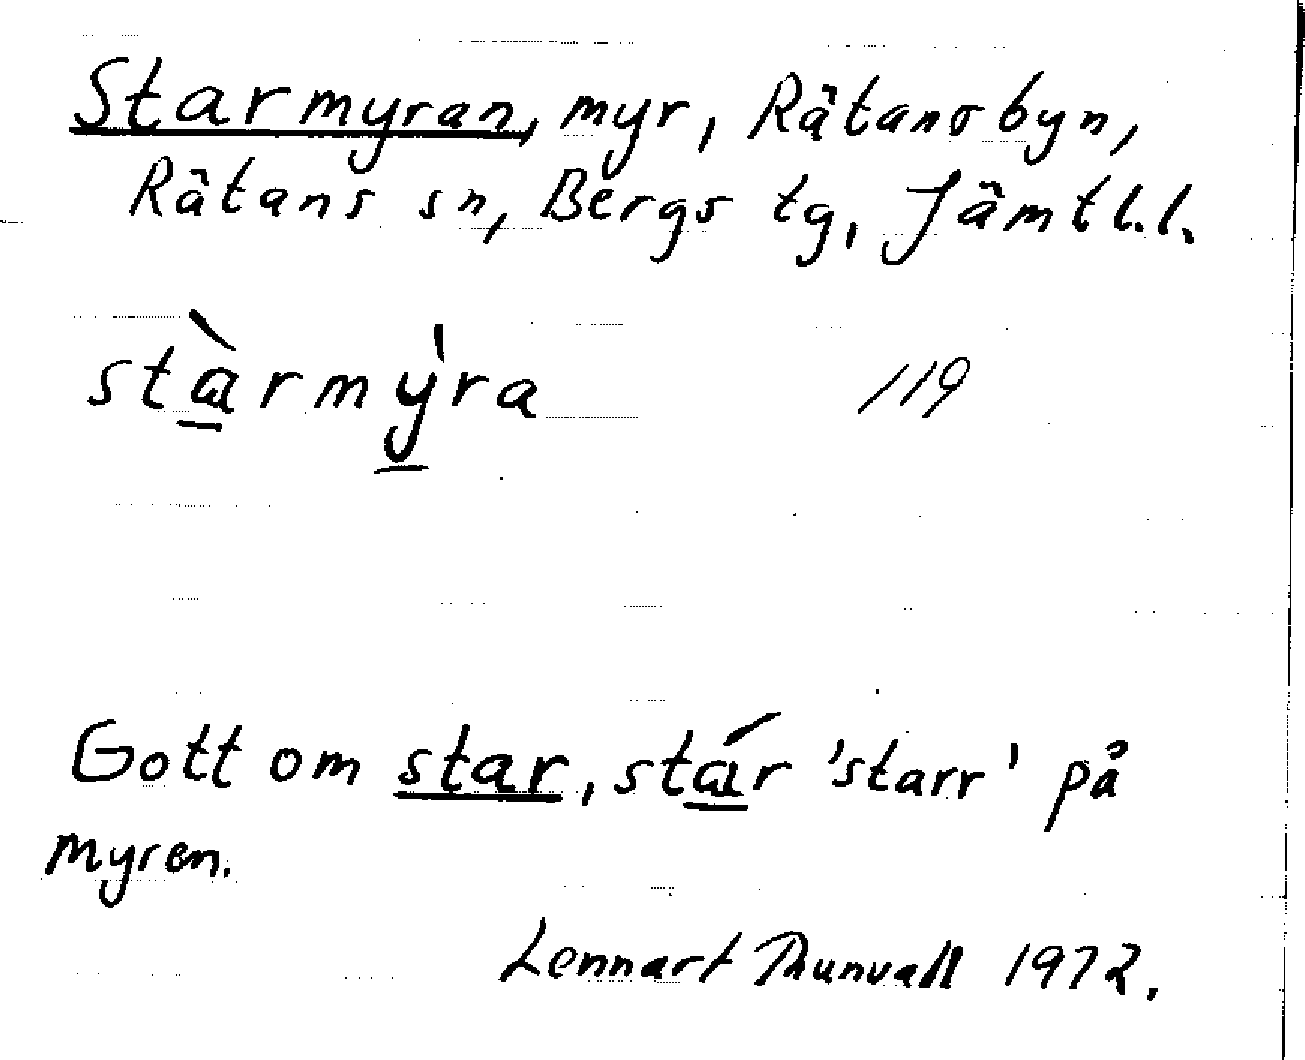 Starmyran, myr, Rätansbyn,
Rätans sn, Bergs tg, Jämtl.l.
stàrmỳra 119
Gott om star, stár 'starr' på
myren.
Lennart Thunvall 1972.